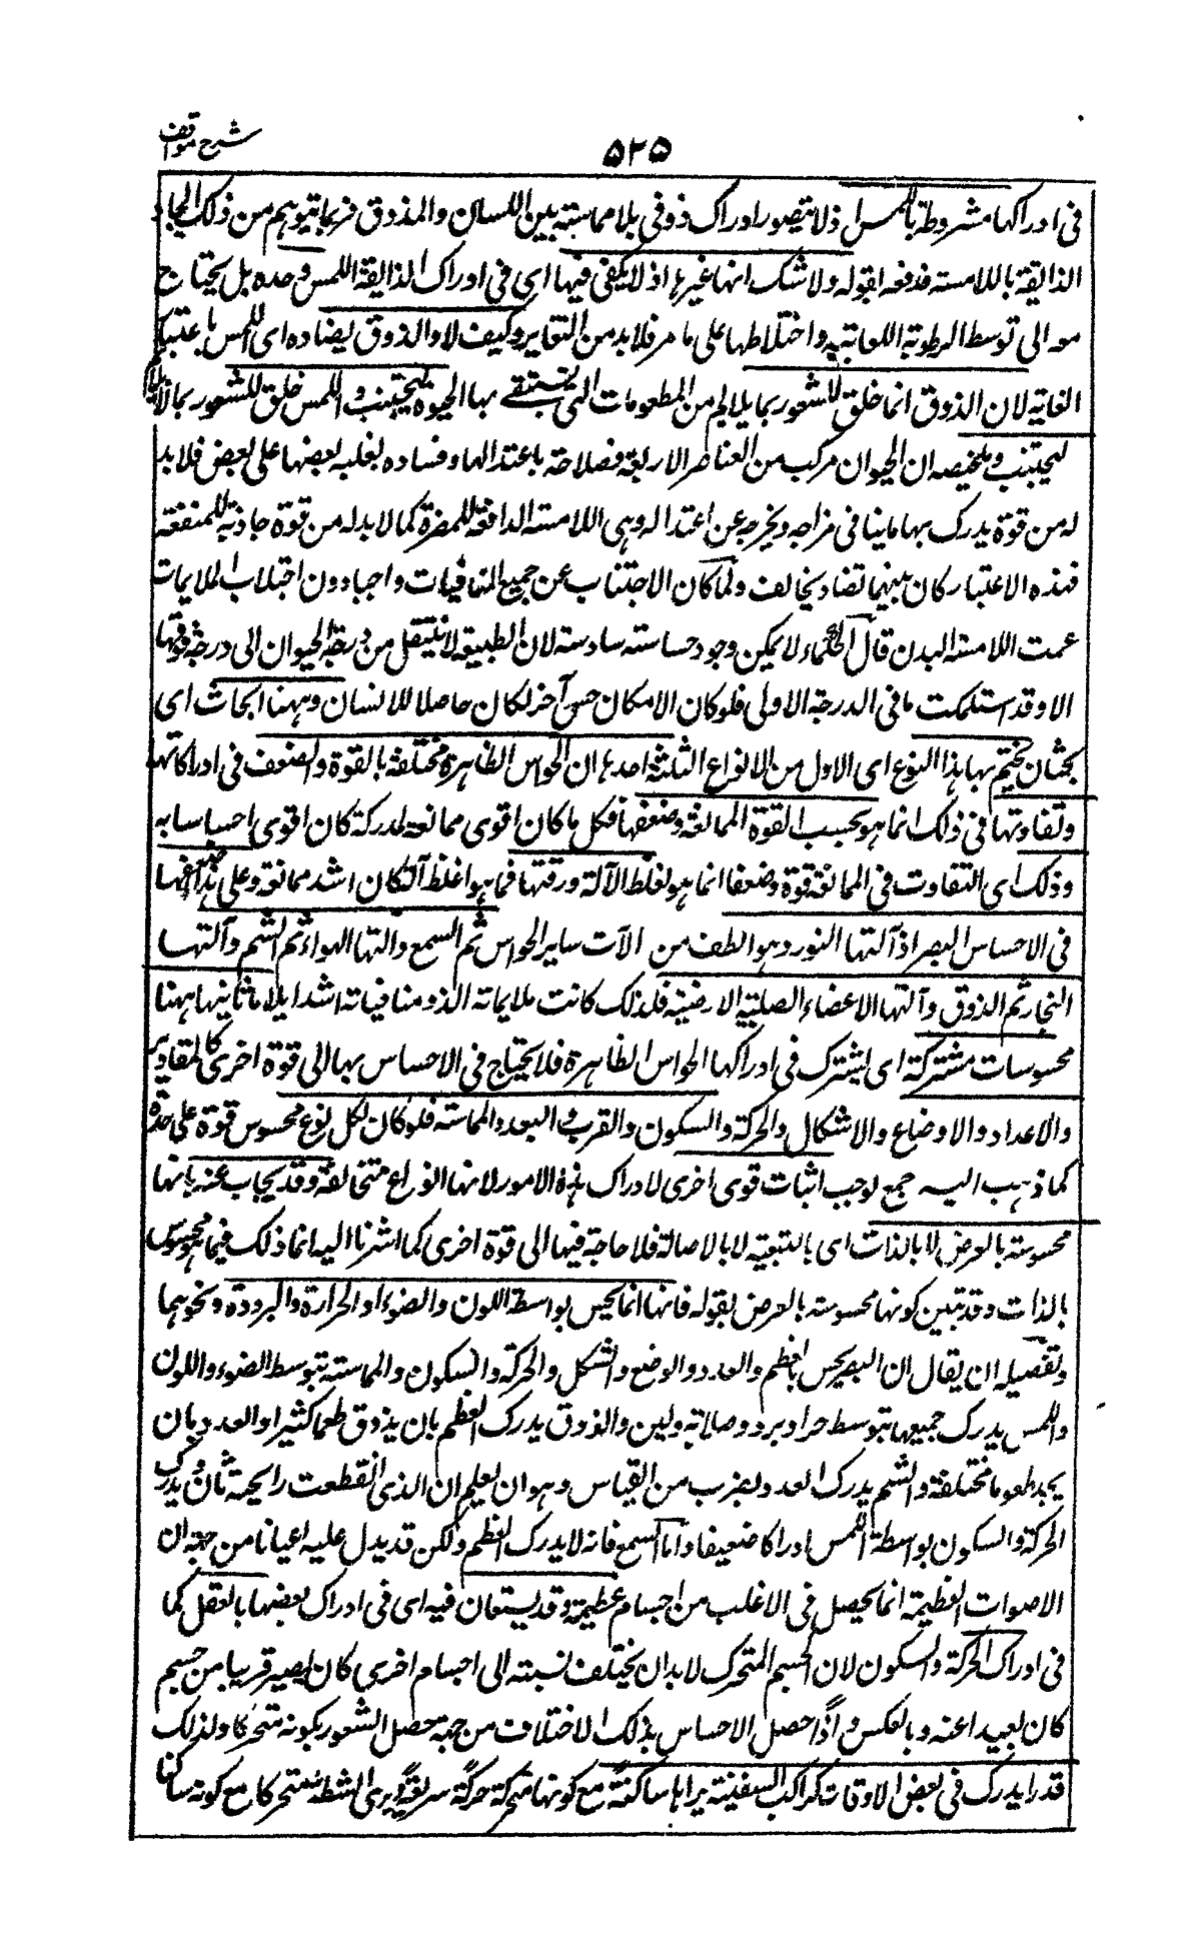 شرح مواقف
۵۲۵
فی ادراکها مشروطة باللمس اذ لا یتصور ادراک ذوقی بلا مماسته بین اللسان والمذوق فربما یتوهم من ذلک اتحاد
الذایقة باللامسته فدفعه بقوله ولا شک انها غیرها اذ لا یکفی فیها ای فی ادراک الذایقة اللمس وحده بل یحتاج
معه الی توسط الرطوبة اللعابیة و اختلاطها علی ما مر فلا بد من التغایر وکیف لا والذوق یضاده ای اللمس باعتبار
الغایة لان الذوق انما خلق للشعور بما یلایم من المطعومات التی تستبقے بها الحیوة لیجتنب و اللمس خلق للشعور بما لا یلایم
لیجتنب و تلخیصه ان الحیوان مرکب من العناصر الاربعة فصلاحه باعتدالها و فساده بغلبه بعضها علی بعض فلا بد
له من قوة یدرک بها ما ینافی مزاجه و یخرجه عن اعتداله وهی اللامسته الدافعة للمضرة کما لا بد له من قوة جاذبة للمنفعة
فبهذه الاعتبار کان بینهما تضاد و تخالف ولما کان الاجتناب عن جمیع المنافیات واجبا دون اجتلاب الملایمات
عمت اللامسته البدن قال الحکماء لا یمکن وجود حاسته سادسته لان الطبیعة لا تنتقل من درجة الحیوان الی درجة فوقها
الا وقد استکملت ما فی الدرجة الاولی فلو کان الامکان حس آخر لکان حاصلا للانسان وههنا ابحاث ای
بحثان نختم بها هذا النوع ای الاول من الانواع الثلثة احدها ان الحواس الظاهرة مختلفة بالقوة والضعف فی ادراکاتها
و تفاوتها فی ذلک انما هو بحسب القوة الممانعة وضعفها فکل ما کان اقوی ممانعة لمدرکة کان اقوی احساسا به
وذلک ای التفاوت فی الممانعة قوة وضعفا انما هو لغلظ الآلة ورقتها فما هو اغلظ آلة کان اشد ممانعة وعلی هذا فاضعفها
فی الاحساس البصر اذ آلتها النور وهو الطف من الآت سایر الحواس ثم السمع والتها الهواء ثم الشم وآلتها
البخار ثم الذوق وآلتها الاعضاء الصلبة الارضیة فلذلک کانت ملایماته الذ و منافیاته اشد ایلاما ثانیها ههنا
محسوسات مشترکة ای یشترک فی ادراکها الحواس الظاهرة فلا یحتاج فی الاحساس بها الی قوة اخری کالمقادیر
والاعداد والاوضاع والاشکال والحرکة والسکون والقرب والبعد والمماسته فلو کان لکل نوع محسوس قوة علی حدة
کما ذهب الیه جمع لوجب اثبات قوی اخری لادراک هذه الامور لانها انواع متخالفة وقد یجاب عنه بانها
محسوسته بالعرض لا بالذات ای بالتبعیة لا بالاصالة فلا حاجة فیها الی قوة اخری کما اشرنا الیه انما ذلک فیما هو محسوس
بالذات وقد تبین کونها محسوسته بالعرض بقوله فانها انما تحس بواسطة اللون والضوء او الحرارة والبرودة ونحوهما
وتفصیله ان یقال ان البصر یحس بالعظم والعدد والوضع والشکل والحرکة والسکون والمماسته بتوسط الضوء واللون
واللمس یدرک جمیعها بتوسط حر او برد وصلابة ولین والذوق یدرک العظم بان یذوق طعما کثیرا والعدد بان
یجد طعوما مختلفة والشم یدرک العدد بضرب من القیاس وهو ان یعلم ان الذی انقطعت رایحته ثان ویدرک
الحرکة والسکون بواسطة اللمس ادراکا ضعیفا واما السمع فانه لا یدرک العظم ولکن قد یدل علیه احیانا من جهة ان
الاصوات العظیمة انما تحصل فی الاغلب من اجسام عظیمة وقد یستعان فیه ای فی ادراک بعضها بالعقل کما
فی ادراک الحرکة والسکون لان الجسم المتحرک لا بد ان یختلف نسبته الی اجسام اخری کان یصیر قریبا من جسم
کان بعیدا عنه و بالعکس و اذا حصل الاحساس بذلک الاختلاف من جهة حصل الشعور بکونه متحرکا ولذلک
قد لا یدرک فی بعض الاوقات کراکب السفینته یراها ساکنة مع کونها متحرکة حرکة سریعة ویری الشط متحرکا مع کونه ساکنا